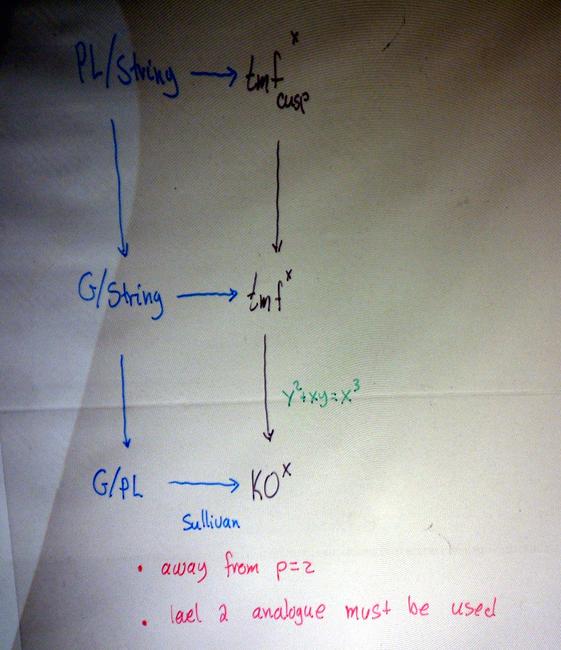 PL/String → tmf^x_cusp
G/String → tmf^x
y²+xy=x³
G/PL → KO^x
Sullivan
• away from p=2
• lael 2 analogue must be used